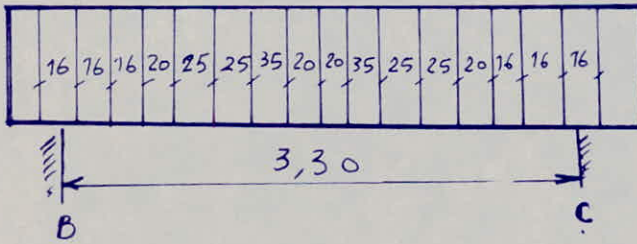 16 16 16 20 25 25 35 20 20 35 25 25 20 16 16 16
3,30
B C